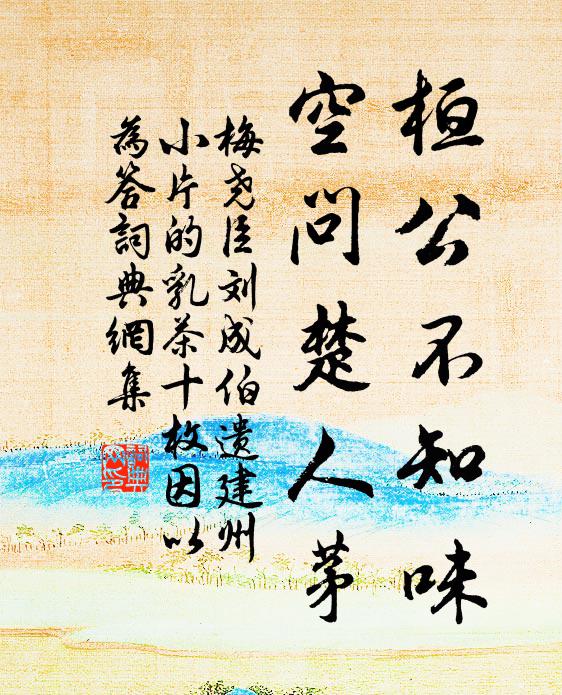 桓公不知味
空问楚人茅
梅尧臣刘成伯遗建州
小片的乳茶十枚因以
為答詞典網集